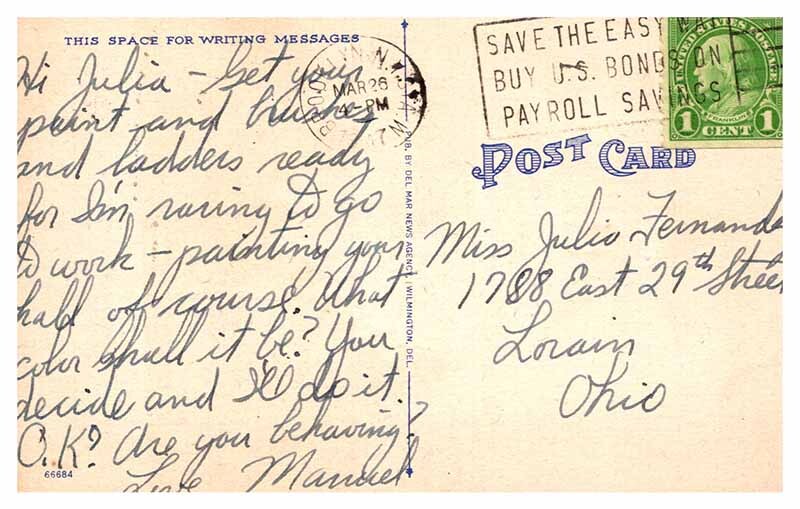 THIS SPACE FOR WRITING MESSAGES
Hi Julia - Get your
paint and brushes
and ladders ready
for I'm raring to go
to work - painting your
hall of course. What
color shall it be? You
decide and I'll do it.
O.K? Are you behaving?
Love Manuel
66684
BROOKLYN, N.Y.
MAR 26
4 - PM
PUB. BY DEL MAR NEWS AGENCY, WILMINGTON, DEL.
SAVE THE EASY WAY
BUY U.S. BONDS ON
PAYROLL SAVINGS
UNITED STATES POSTAGE
FRANKLIN
1 CENT 1
POST CARD
Miss Julia
1788 East 29th Street
Lorain
Ohio